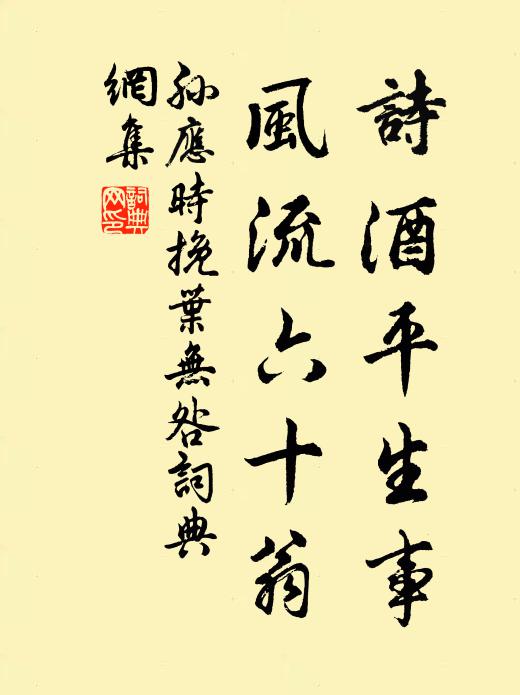 詩酒平生事
風流六十翁
孫應時挽葉無咎詞典
網集
詞典
网印